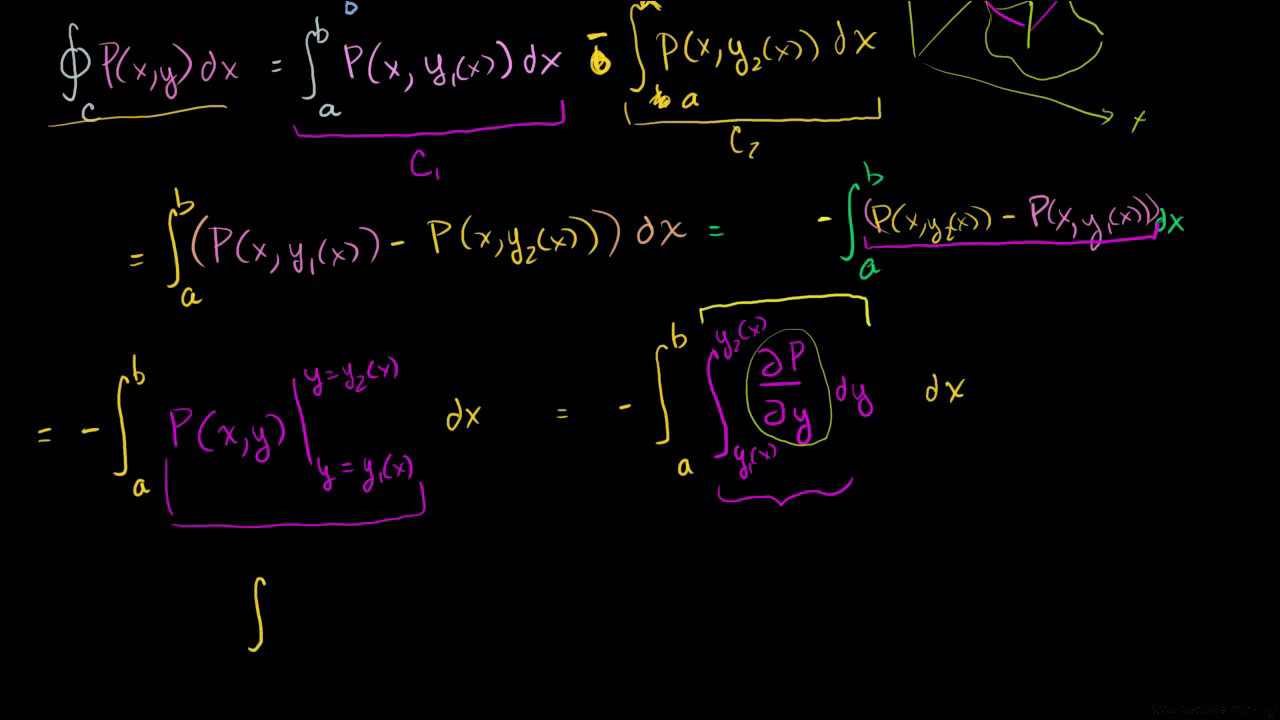 b
∮_C P(x,y) dx = ∫_a^b P(x, y₁(x)) dx - ∫_a P(x, y₂(x)) dx
x
C₁
C₂
= ∫_a^b (P(x, y₁(x)) - P(x, y₂(x))) dx = - ∫_a^b (P(x, y₂(x)) - P(x, y₁(x))) dx
= - ∫_a^b P(x,y) |_{y = y₁(x)}^{y = y₂(x)} dx = - ∫_a^b ∫_{y₁(x)}^{y₂(x)} ∂P/∂y dy dx
∫